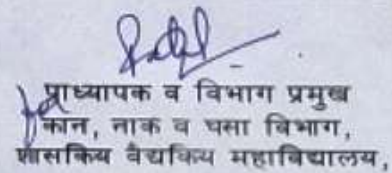 प्राध्यापक व विभाग प्रमुख
कान, नाक व घसा विभाग,
शासकिय वैद्यकिय महाविद्यालय,